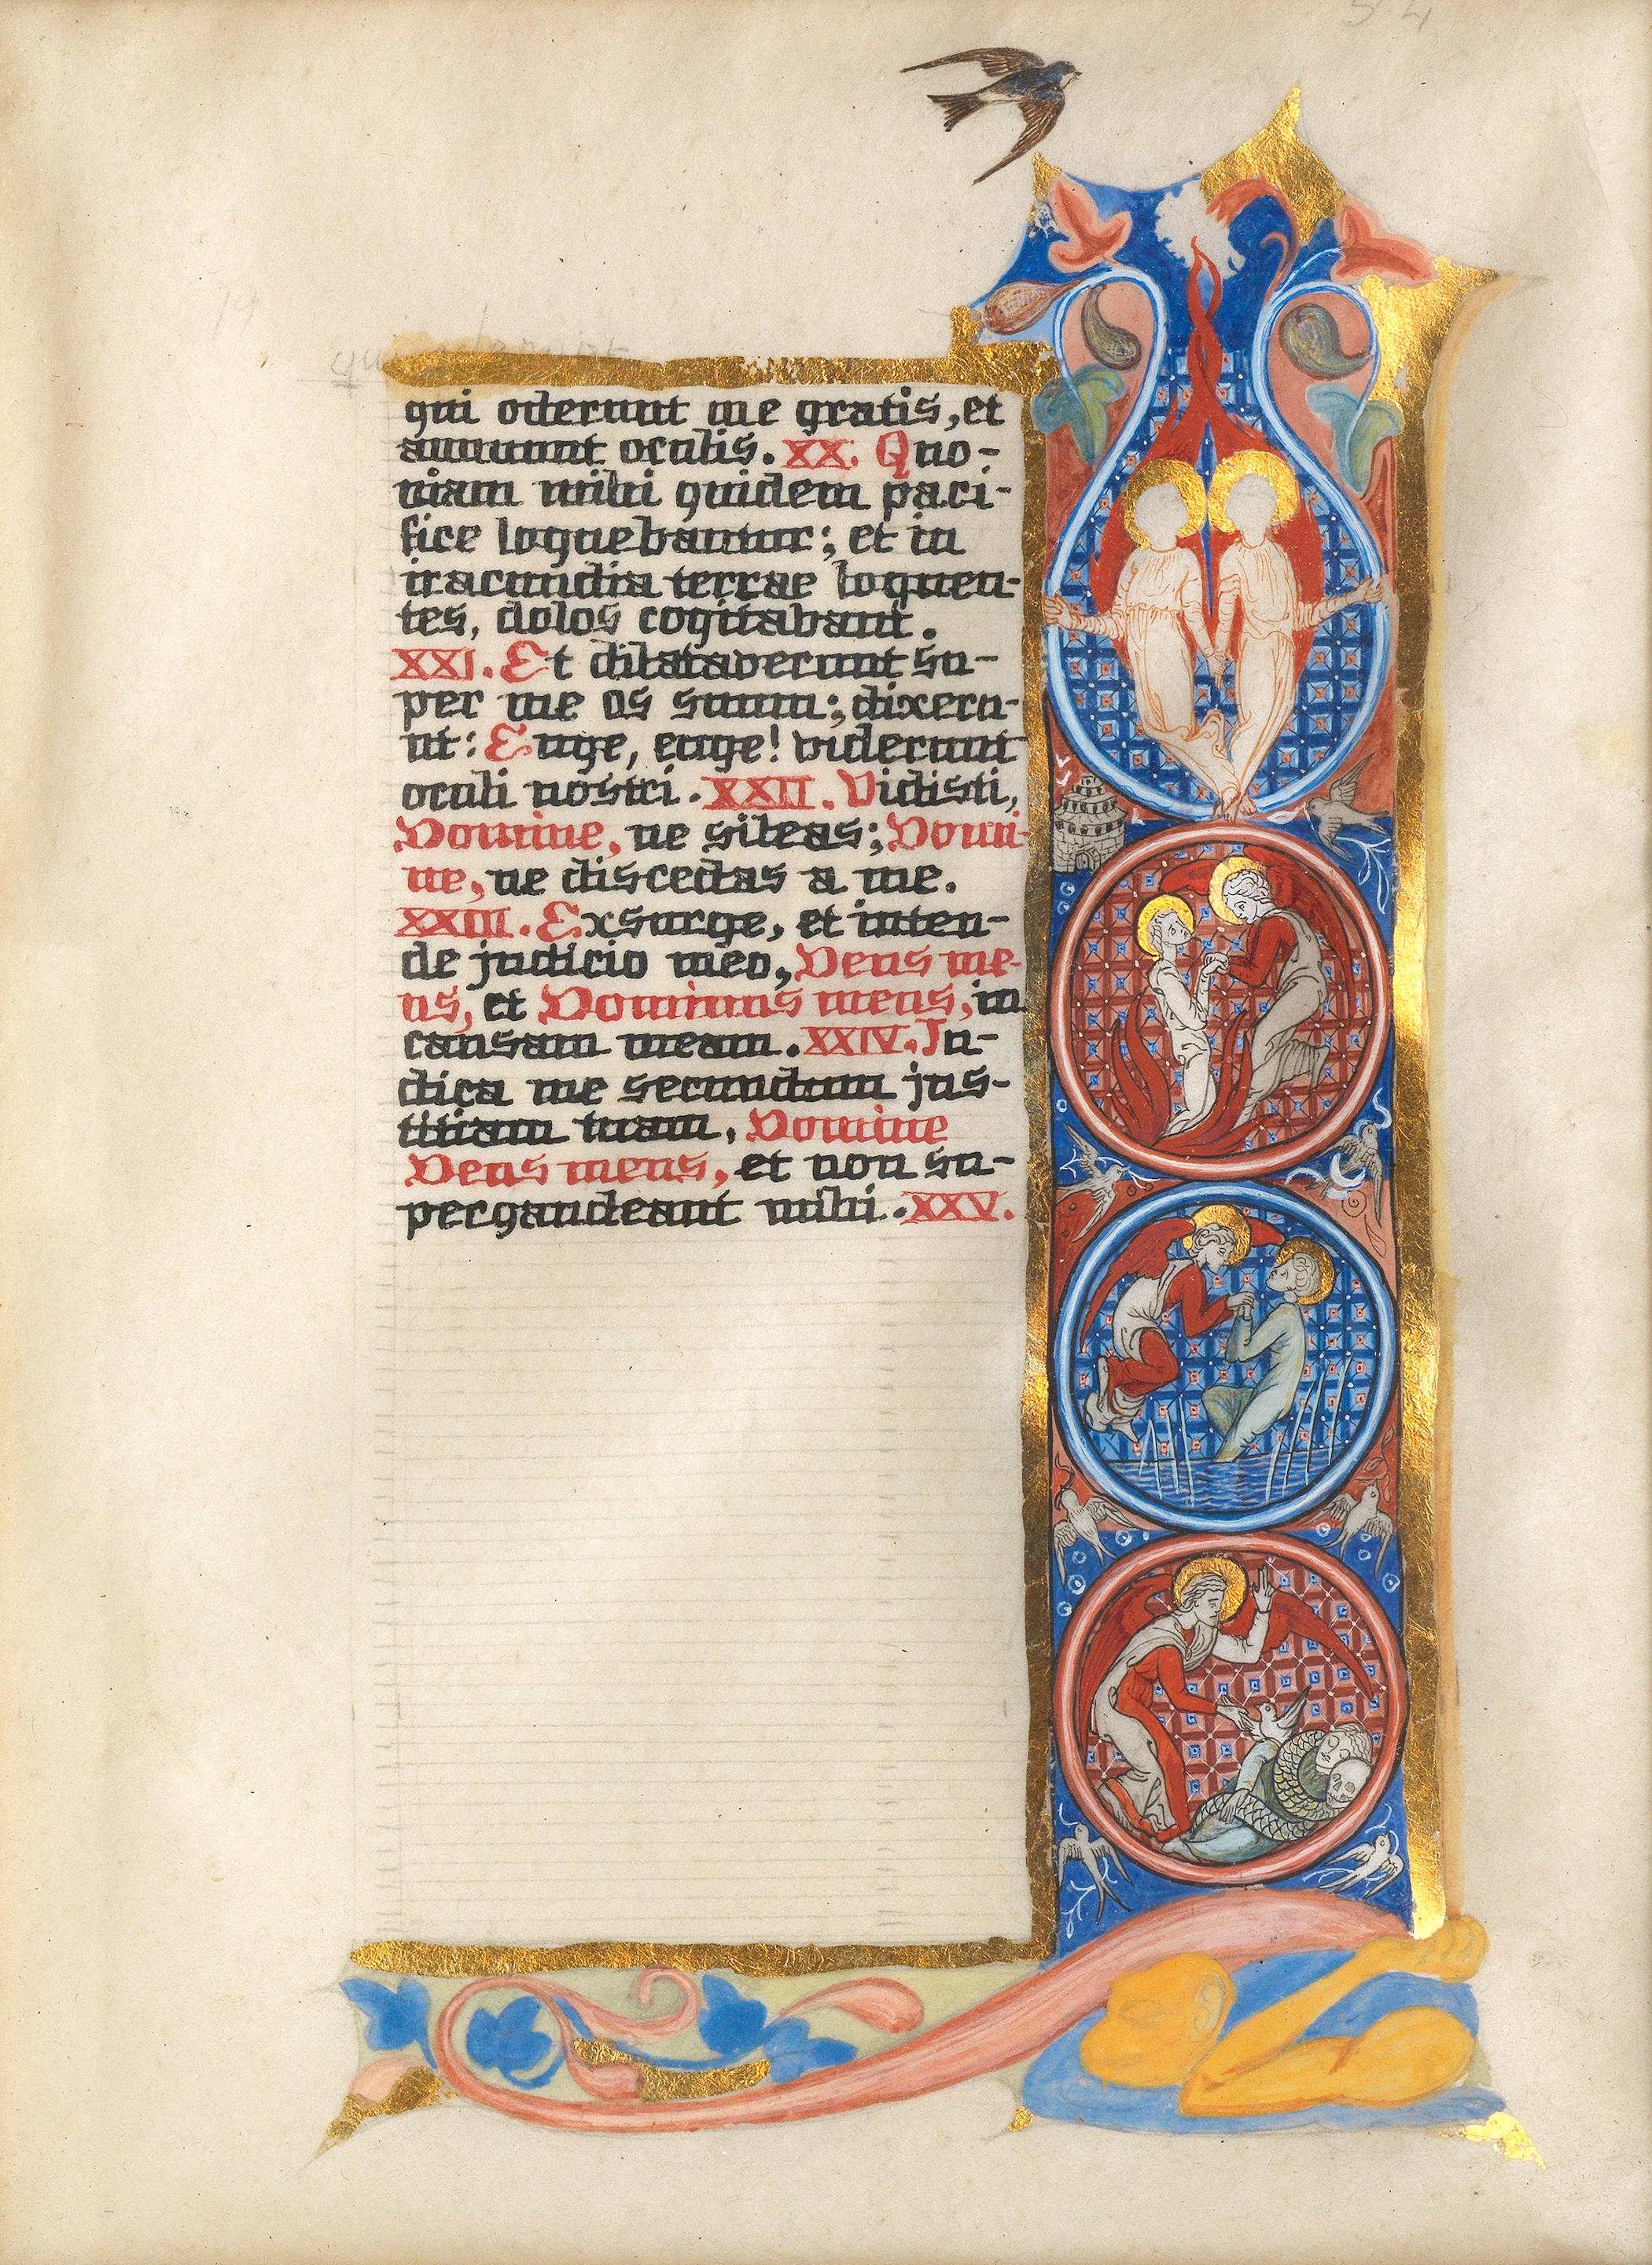 54
qui oderunt me gratis, et
annuunt oculis. XX. Quo-
niam mihi quidem paci-
fice loquebantur; et in
iracundia terrae loquen-
tes, dolos cogitabant.
XXI. Et dilataverunt su-
per me os suum; dixeru-
nt: Euge, euge! viderunt
oculi nostri. XXII. Vidisti,
Domine, ne sileas; Domi-
ne, ne discedas a me.
XXIII. Exsurge, et inten-
de judicio meo, Deus me-
us, et Dominus meus, in
causam meam. XXIV. Ju-
dica me secundum jus-
titiam tuam, Domine
Deus meus, et non su-
pergaudeant mihi. XXV.